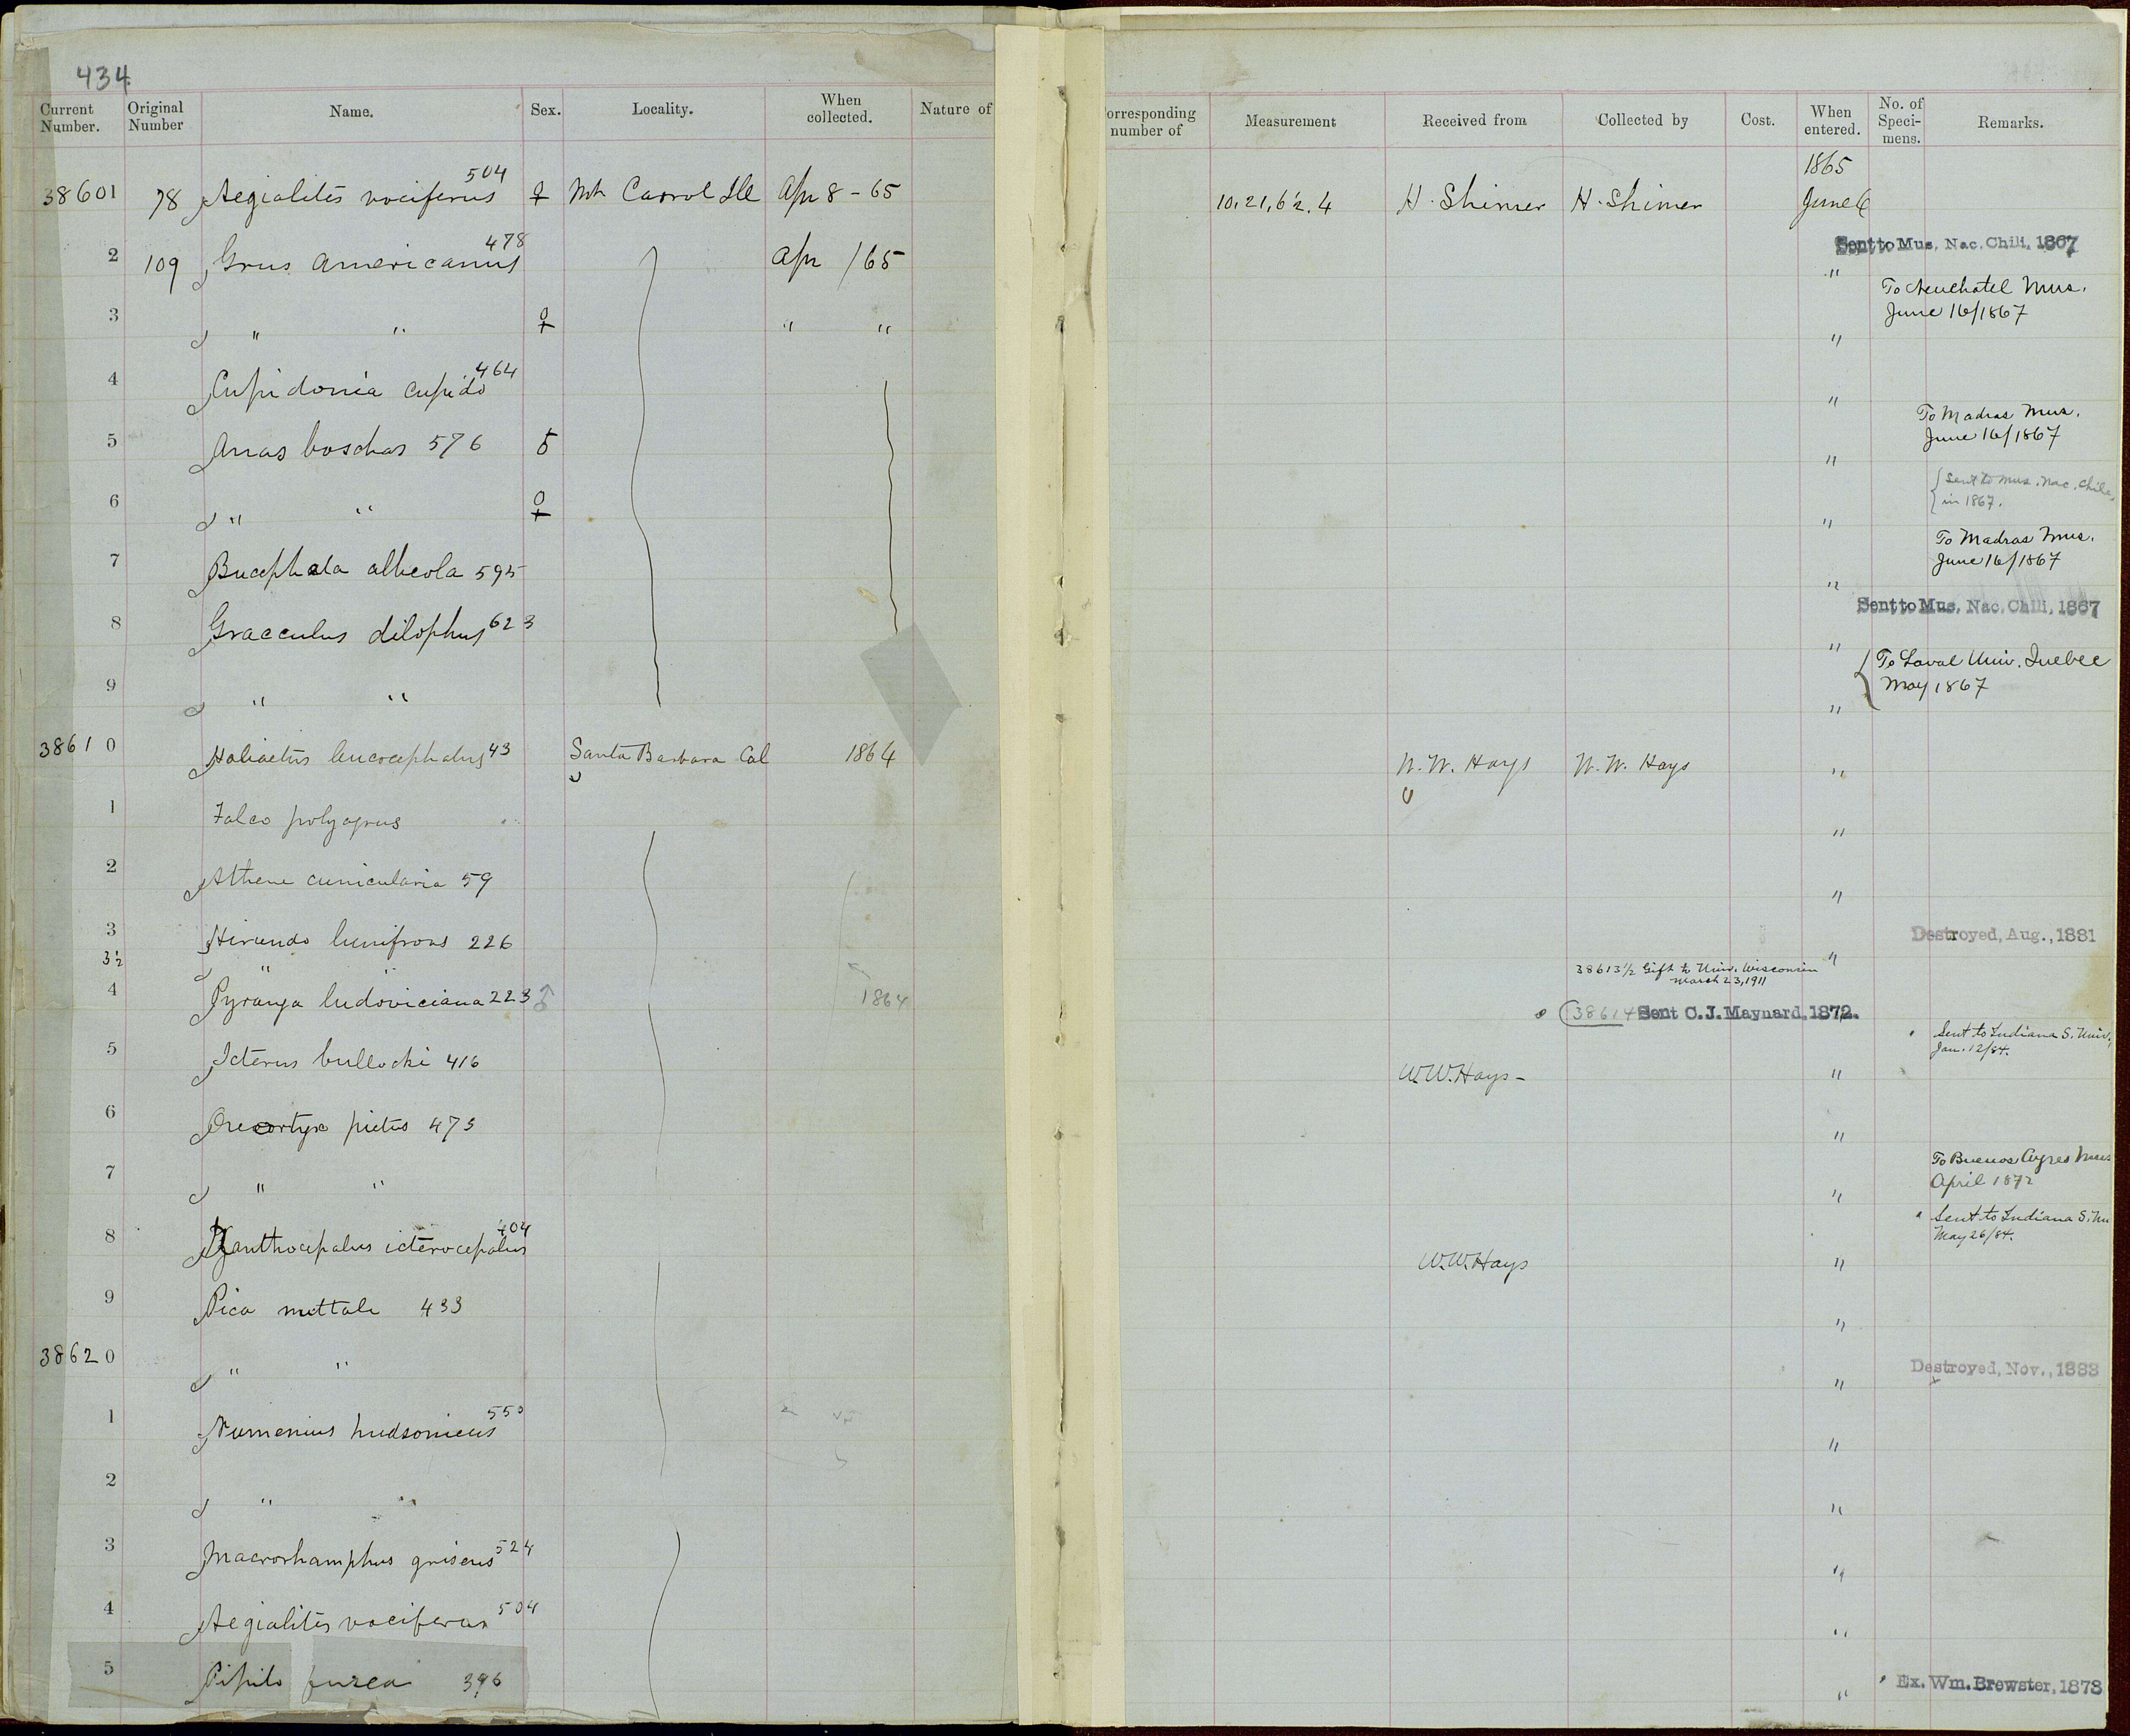 434.
Current Number. Original Number Name. Sex. Locality. When collected. Nature of orresponding number of Measurement Received from Collected by Cost. When entered. No. of Speci-mens. Remarks.
1865
38601 78 Aegialitis vociferus 504 ♀ Mt Carrol Ill Apr 8 - 65 10, 21, 6½. 4 H. Shimer H. Shimer June 6
Sent to Mus. Nac. Chili, 1867
2 109 Grus americanus 478 Apr /65 "
To Neuchatel Mus.
June 16/1867
3 " " ♀ " " "
4 Cupidonia cupido 464 "
To Madras Mus.
June 16/1867
5 Anas boschas 576 "
{Sent to Mus. Nac. Chile,
in 1867.
6 " " ♀ "
To Madras Mus.
June 16/1867
7 Bucephala albeola 595 "
Sent to Mus. Nac. Chili, 1867
8 Gracculus dilophus 623 "
{To Laval Univ. Quebec
May 1867
9 " " "
38610 Haliaetus leucocephalus 43 Santa Barbara Cal 1864 W. W. Hays W. W. Hays "
1 Falco polyagrus "
2 Athene cunicularia 59 "
Destroyed, Aug., 1881
3 Hirundo lunifrons 226 "
3½ " " 38613½ Gift to Univ. Wisconsin
March 23, 1911
4 Pyranga ludoviciana 223 ♂ 1864 38614 Sent C. J. Maynard, 1872.
Sent to Indiana S. Univ.,
Jan. 12/84.
5 Icterus bullocki 416 W.W. Hays - "
6 Oreortyx pictus 473 "
To Buenos Ayres Mus
April 1872
7 " " "
Sent to Indiana S. Un
May 26/84.
8 Xanthocepalus icterocepalus 404 W.W. Hays "
9 Pica nuttali 433 "
Destroyed, Nov., 1888
38620 " " "
1 Numenius hudsonicus 550 "
2 " " "
3 Macrorhamphus griseus 524 "
4 Aegialitis vociferus 504 "
Ex. Wm. Brewster, 1878
5 Pipilo fusca 396 "